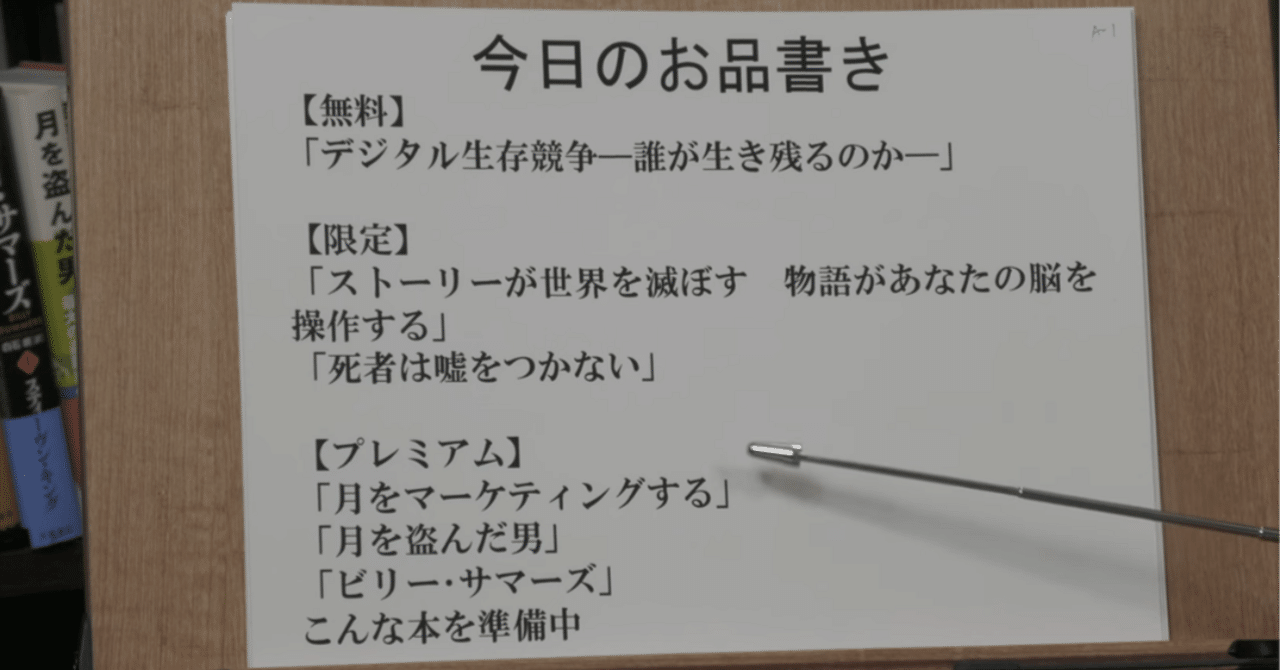 A-1
今日のお品書き
【無料】
「デジタル生存競争―誰が生き残るのか―」
【限定】
「ストーリーが世界を滅ぼす　物語があなたの脳を
操作する」
「死者は嘘をつかない」
【プレミアム】
「月をマーケティングする」
「月を盗んだ男」
「ビリー・サマーズ」
こんな本を準備中
月を盗んだ男
サマーズ
スティーヴン・キング